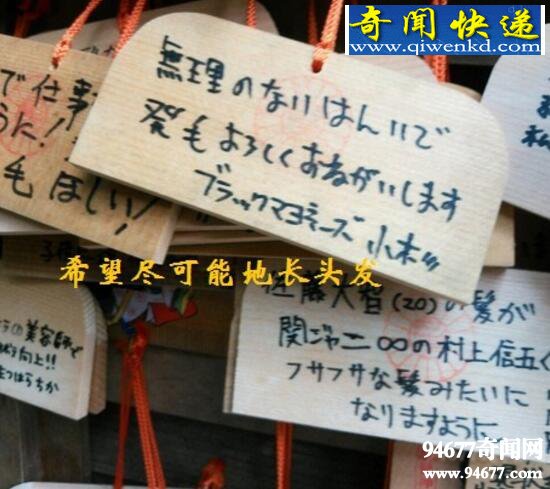 奇闻快递
www.qiwenkd.com
無理のないはんいで
発毛よろしくおねがいします
ブラックマヨネーズ 小杉
で仕事
うに!
毛ほしい!
希望尽可能地长头发
佐藤大智(20)の髪が
関ジャニ∞の村上信五く
フサフサな髪みたいに
なりますように
の美容師で
向上!!
松
94677奇闻网
www.94677.com